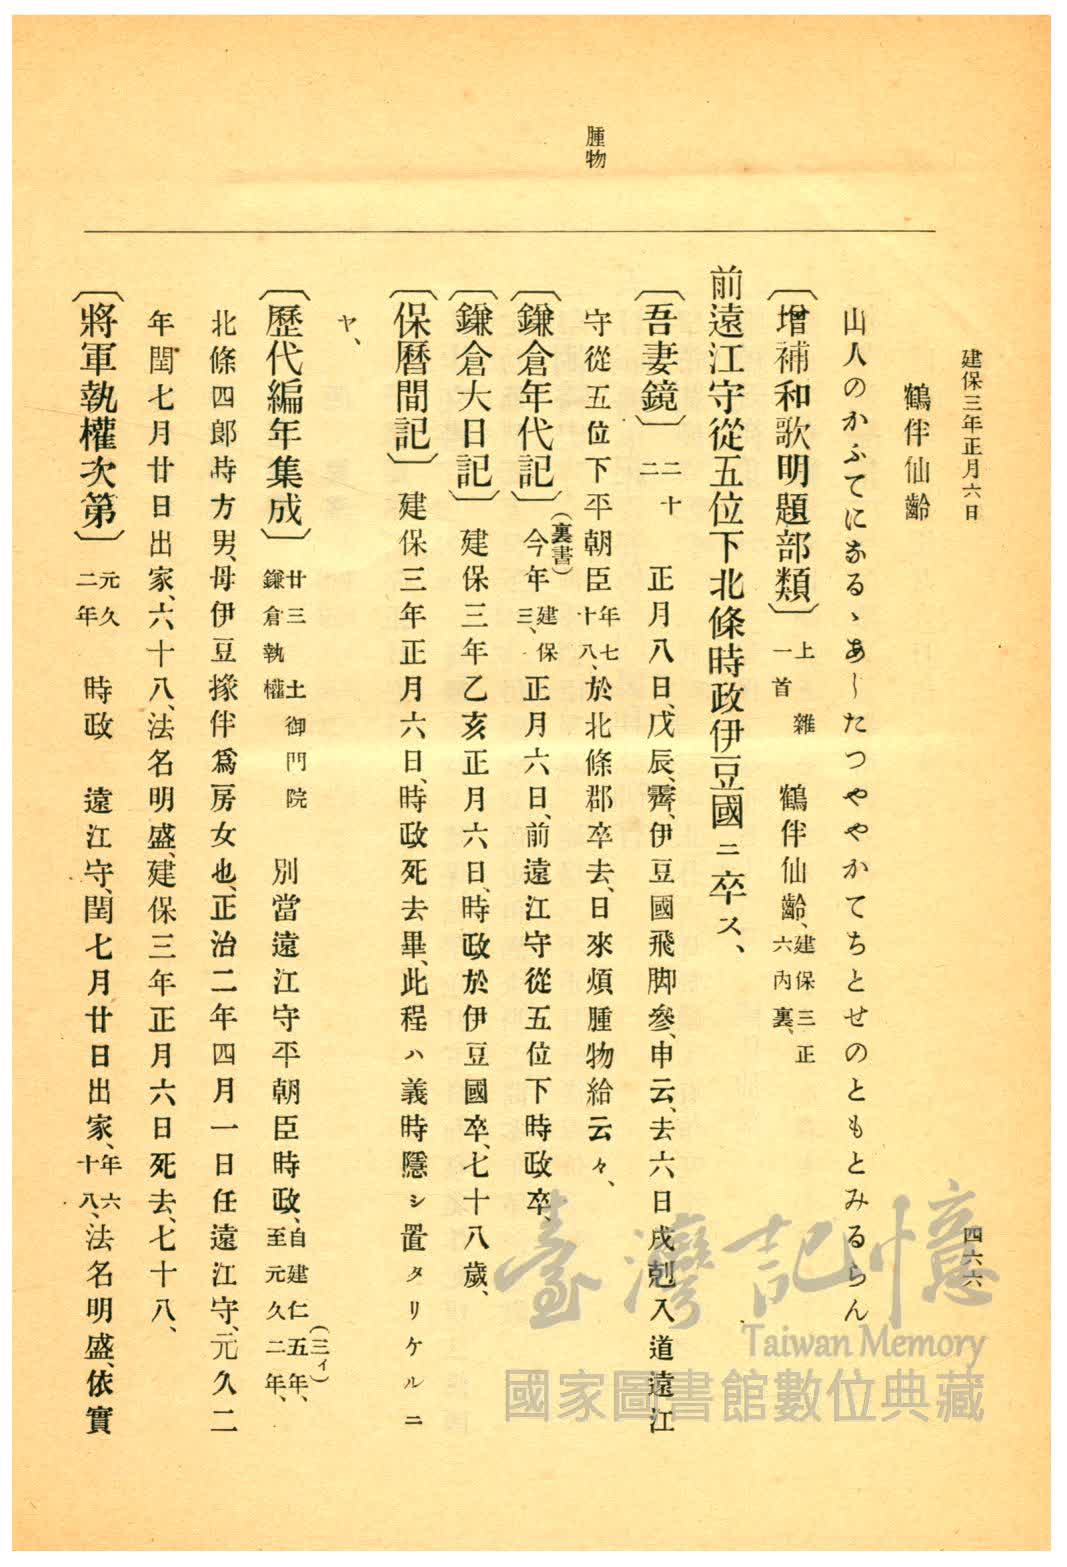 建保三年正月六日
四六六
腫物
鶴伴仙齡
山人のかふてになるゝあしたつややかてちとせのともとみるらん
〔增補和歌明題部類〕上一首 雜 鶴伴仙齡、建保三正六內裏、
前遠江守從五位下北條時政伊豆國ニ卒ス、
〔吾妻鏡〕二十二 正月八日、戊辰、霽、伊豆國飛脚參、申云、去六日戌剋入道遠江
守從五位下平朝臣年七十八、於北條郡卒去、日來煩腫物給云々、
〔鎌倉年代記〕(裏書)今年建保三、正月六日、前遠江守從五位下時政卒、
〔鎌倉大日記〕建保三年乙亥正月六日、時政於伊豆國卒、七十八歲、
〔保曆間記〕建保三年正月六日、時政死去畢、此程ハ義時隱シ置タリケルニ
ヤ、
〔歷代編年集成〕廿三 土御門院 鎌倉執權 別當遠江守平朝臣時政、自建仁五年、(三イ)至元久二年、
北條四郞時方男、母伊豆掾伴爲房女也、正治二年四月一日任遠江守、元久二
年閏七月廿日出家、六十八、法名明盛、建保三年正月六日死去、七十八、
〔將軍執權次第〕元久二年 時政 遠江守、閏七月廿日出家、年六十八、法名明盛、依實
臺灣記憶
Taiwan Memory
國家圖書館數位典藏